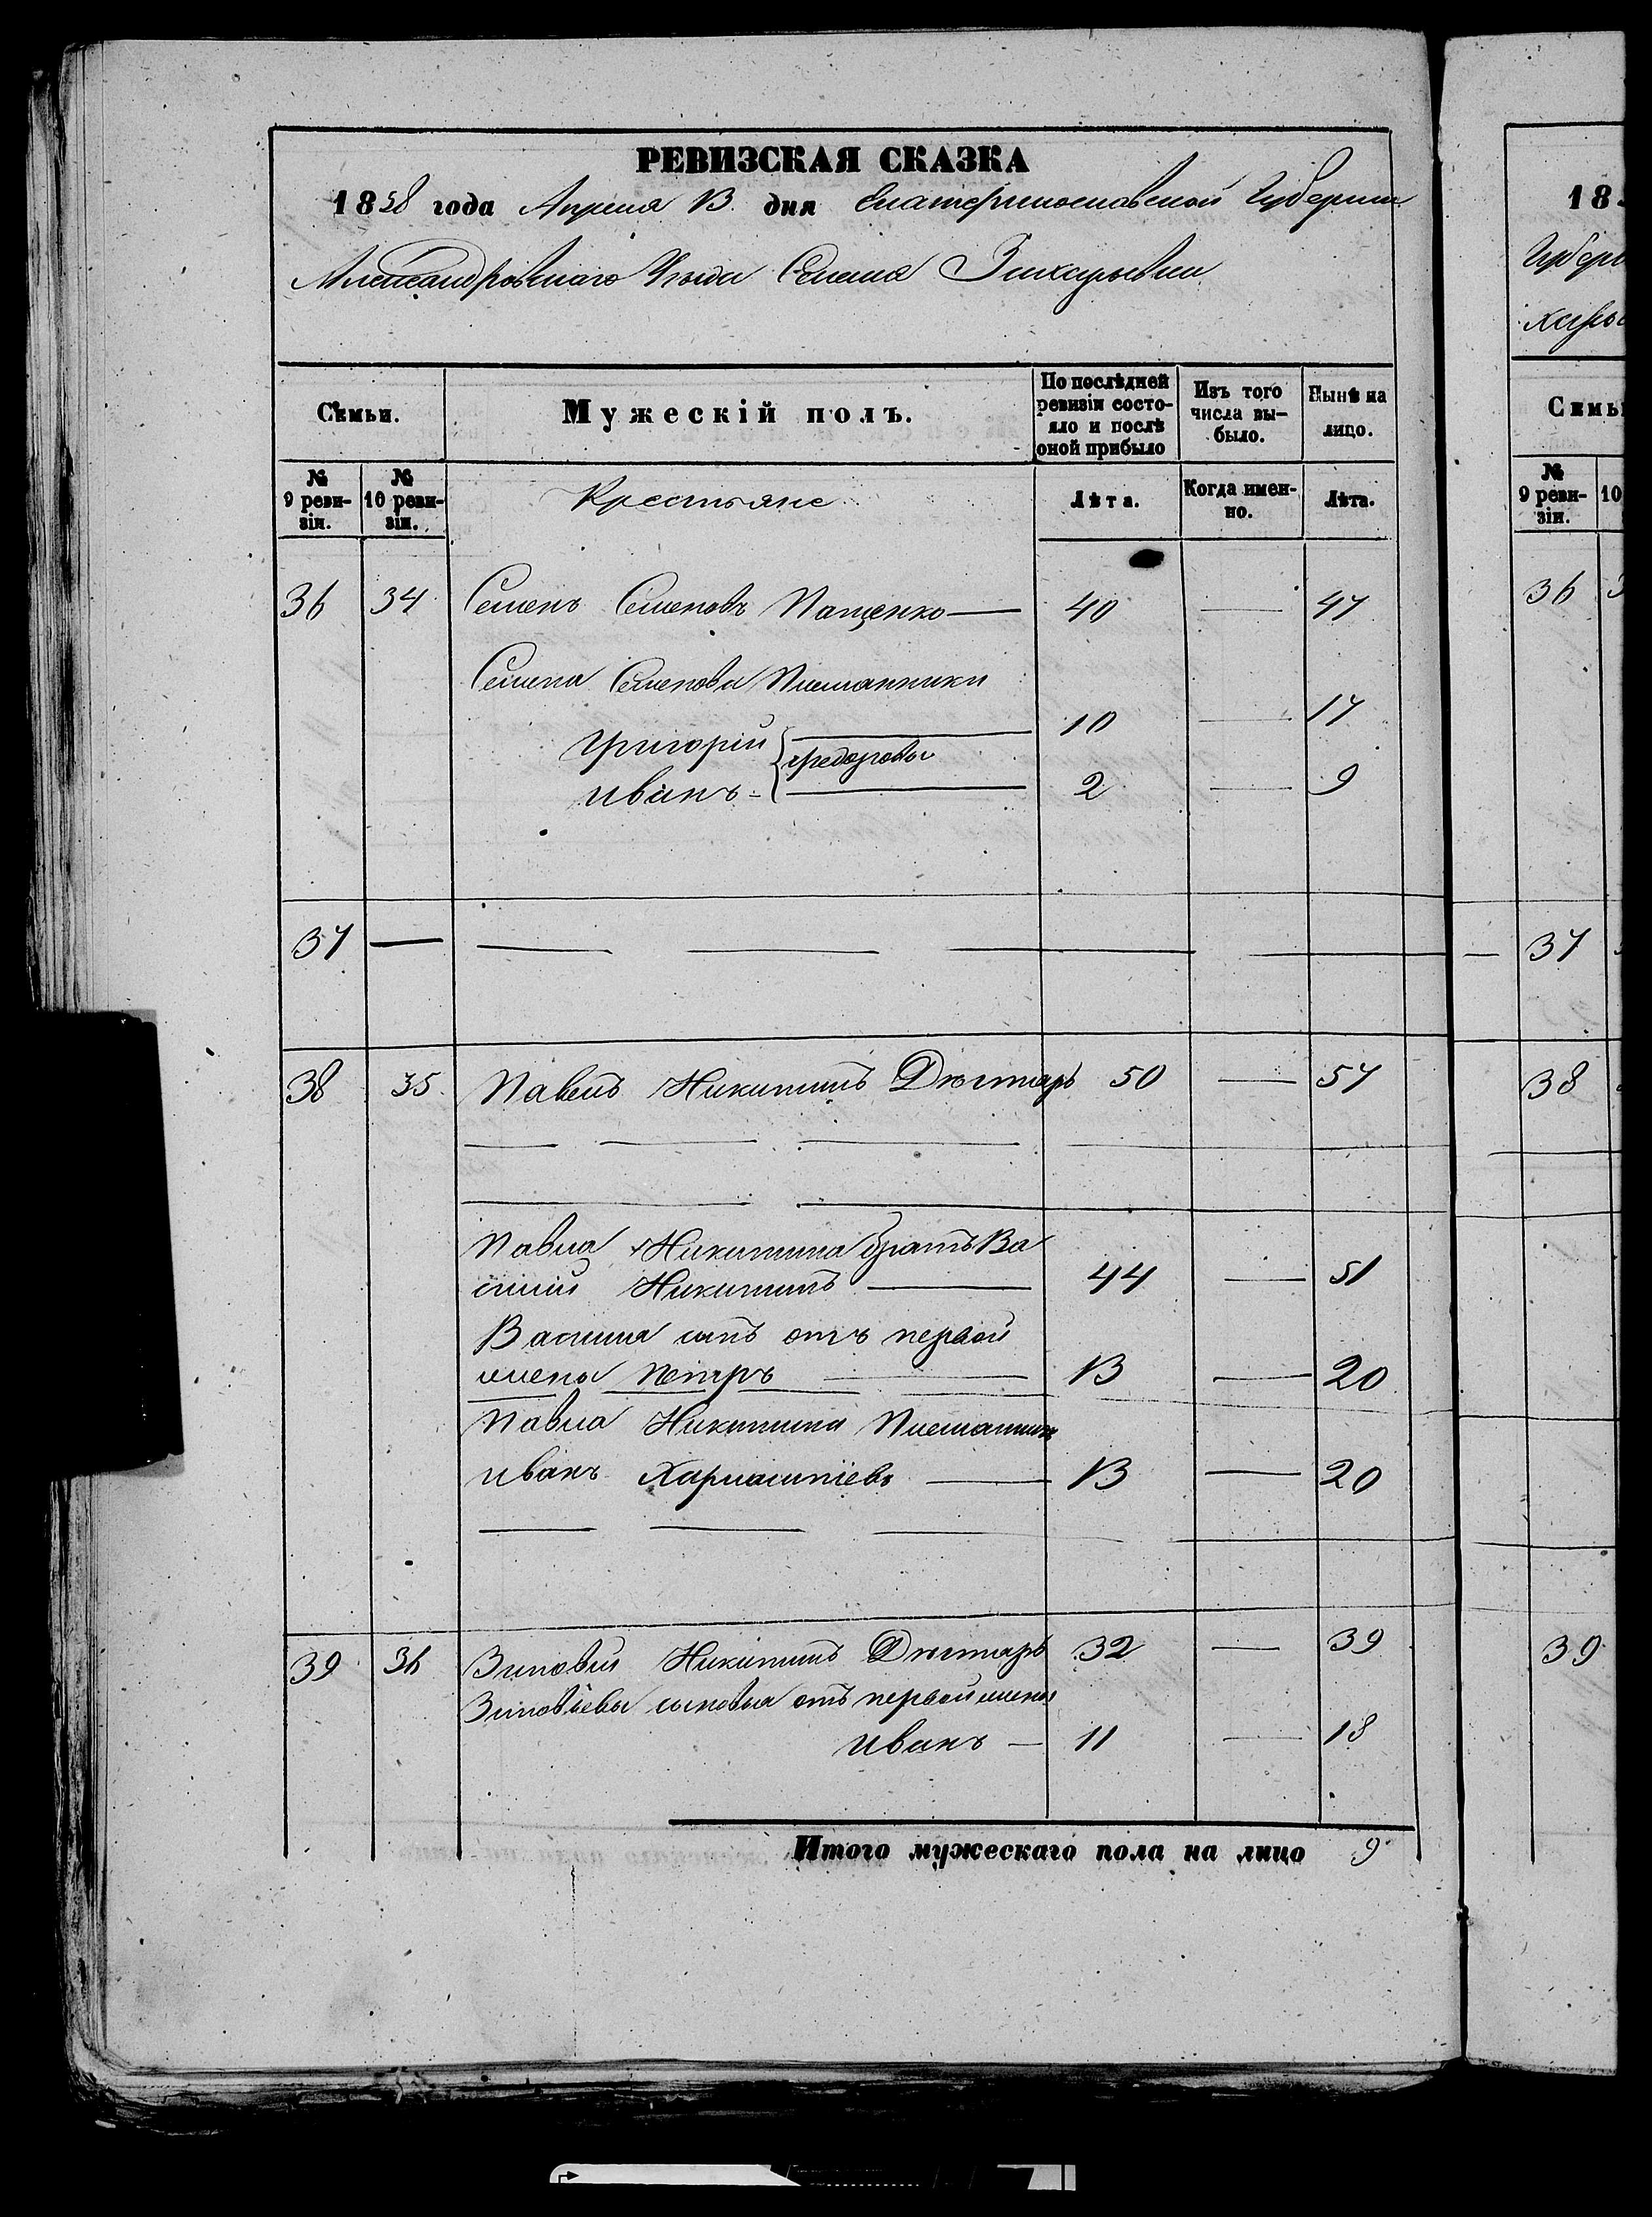 РЕВИЗСКАЯ СКАЗКА
1858 года Апреля 13 дня Екатеринославской Губернии
Александровскаго Уезда Селенія Захарьевки
Семьи. Мужескій полъ. По послѣдней ревизіи состояло и послѣ оной прибыло Изъ того числа выбыло. Нынѣ на лицо.
№ 9 ревизіи. № 10 ревизіи. Крестьяне Лѣта. Когда именно. Лѣта.
36 34 Семенъ Семеновъ Пащенко — 40 — 47
Семена Семенова Племянники
Григорій 10 — 17
Федоровы
Иванъ 2 — 9
37 —
38 35 Павелъ Никитинъ Дѣгтярь 50 — 57
Павла Никитина братъ Ва
силій Никитинъ — 44 — 51
Василія сынъ отъ первой
жены Петръ — 13 — 20
Павла Никитина Племянникъ
Иванъ Харлампіевъ — 13 — 20
39 36 Зиновій Никитинъ Дѣгтярь 32 — 39
Зиновіевы сыновья отъ первой жены
Иванъ — 11 — 18
Итого мужескаго пола на лицо 9
18
Губерн
харье
Семьи
№ 9 ревизіи. 10
36
37
38
39